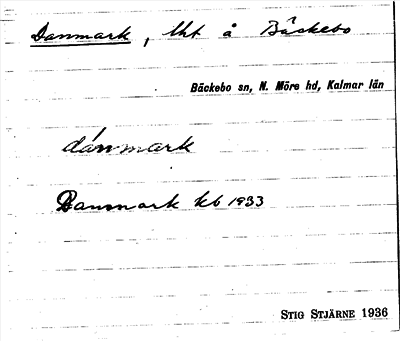 Danmark, lht å Bäckebo
Bäckebo sn, N. Möre hd, Kalmar län
dánmark
Danmark kb 1933
STIG STJÄRNE 1936